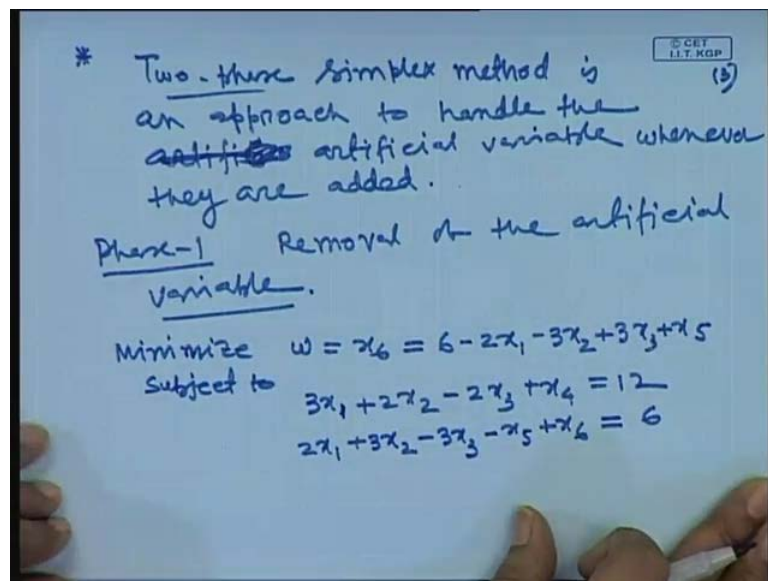 © CET
I.I.T. KGP
(3)
* Two-phase simplex method is
an approach to handle the
artificial variable whenever
they are added.
Phase-1 Removal of the artificial
variable.
Minimize w = x₆ = 6 - 2x₁ - 3x₂ + 3x₃ + x₅
Subject to
3x₁ + 2x₂ - 2x₃ + x₄ = 12
2x₁ + 3x₂ - 3x₃ - x₅ + x₆ = 6